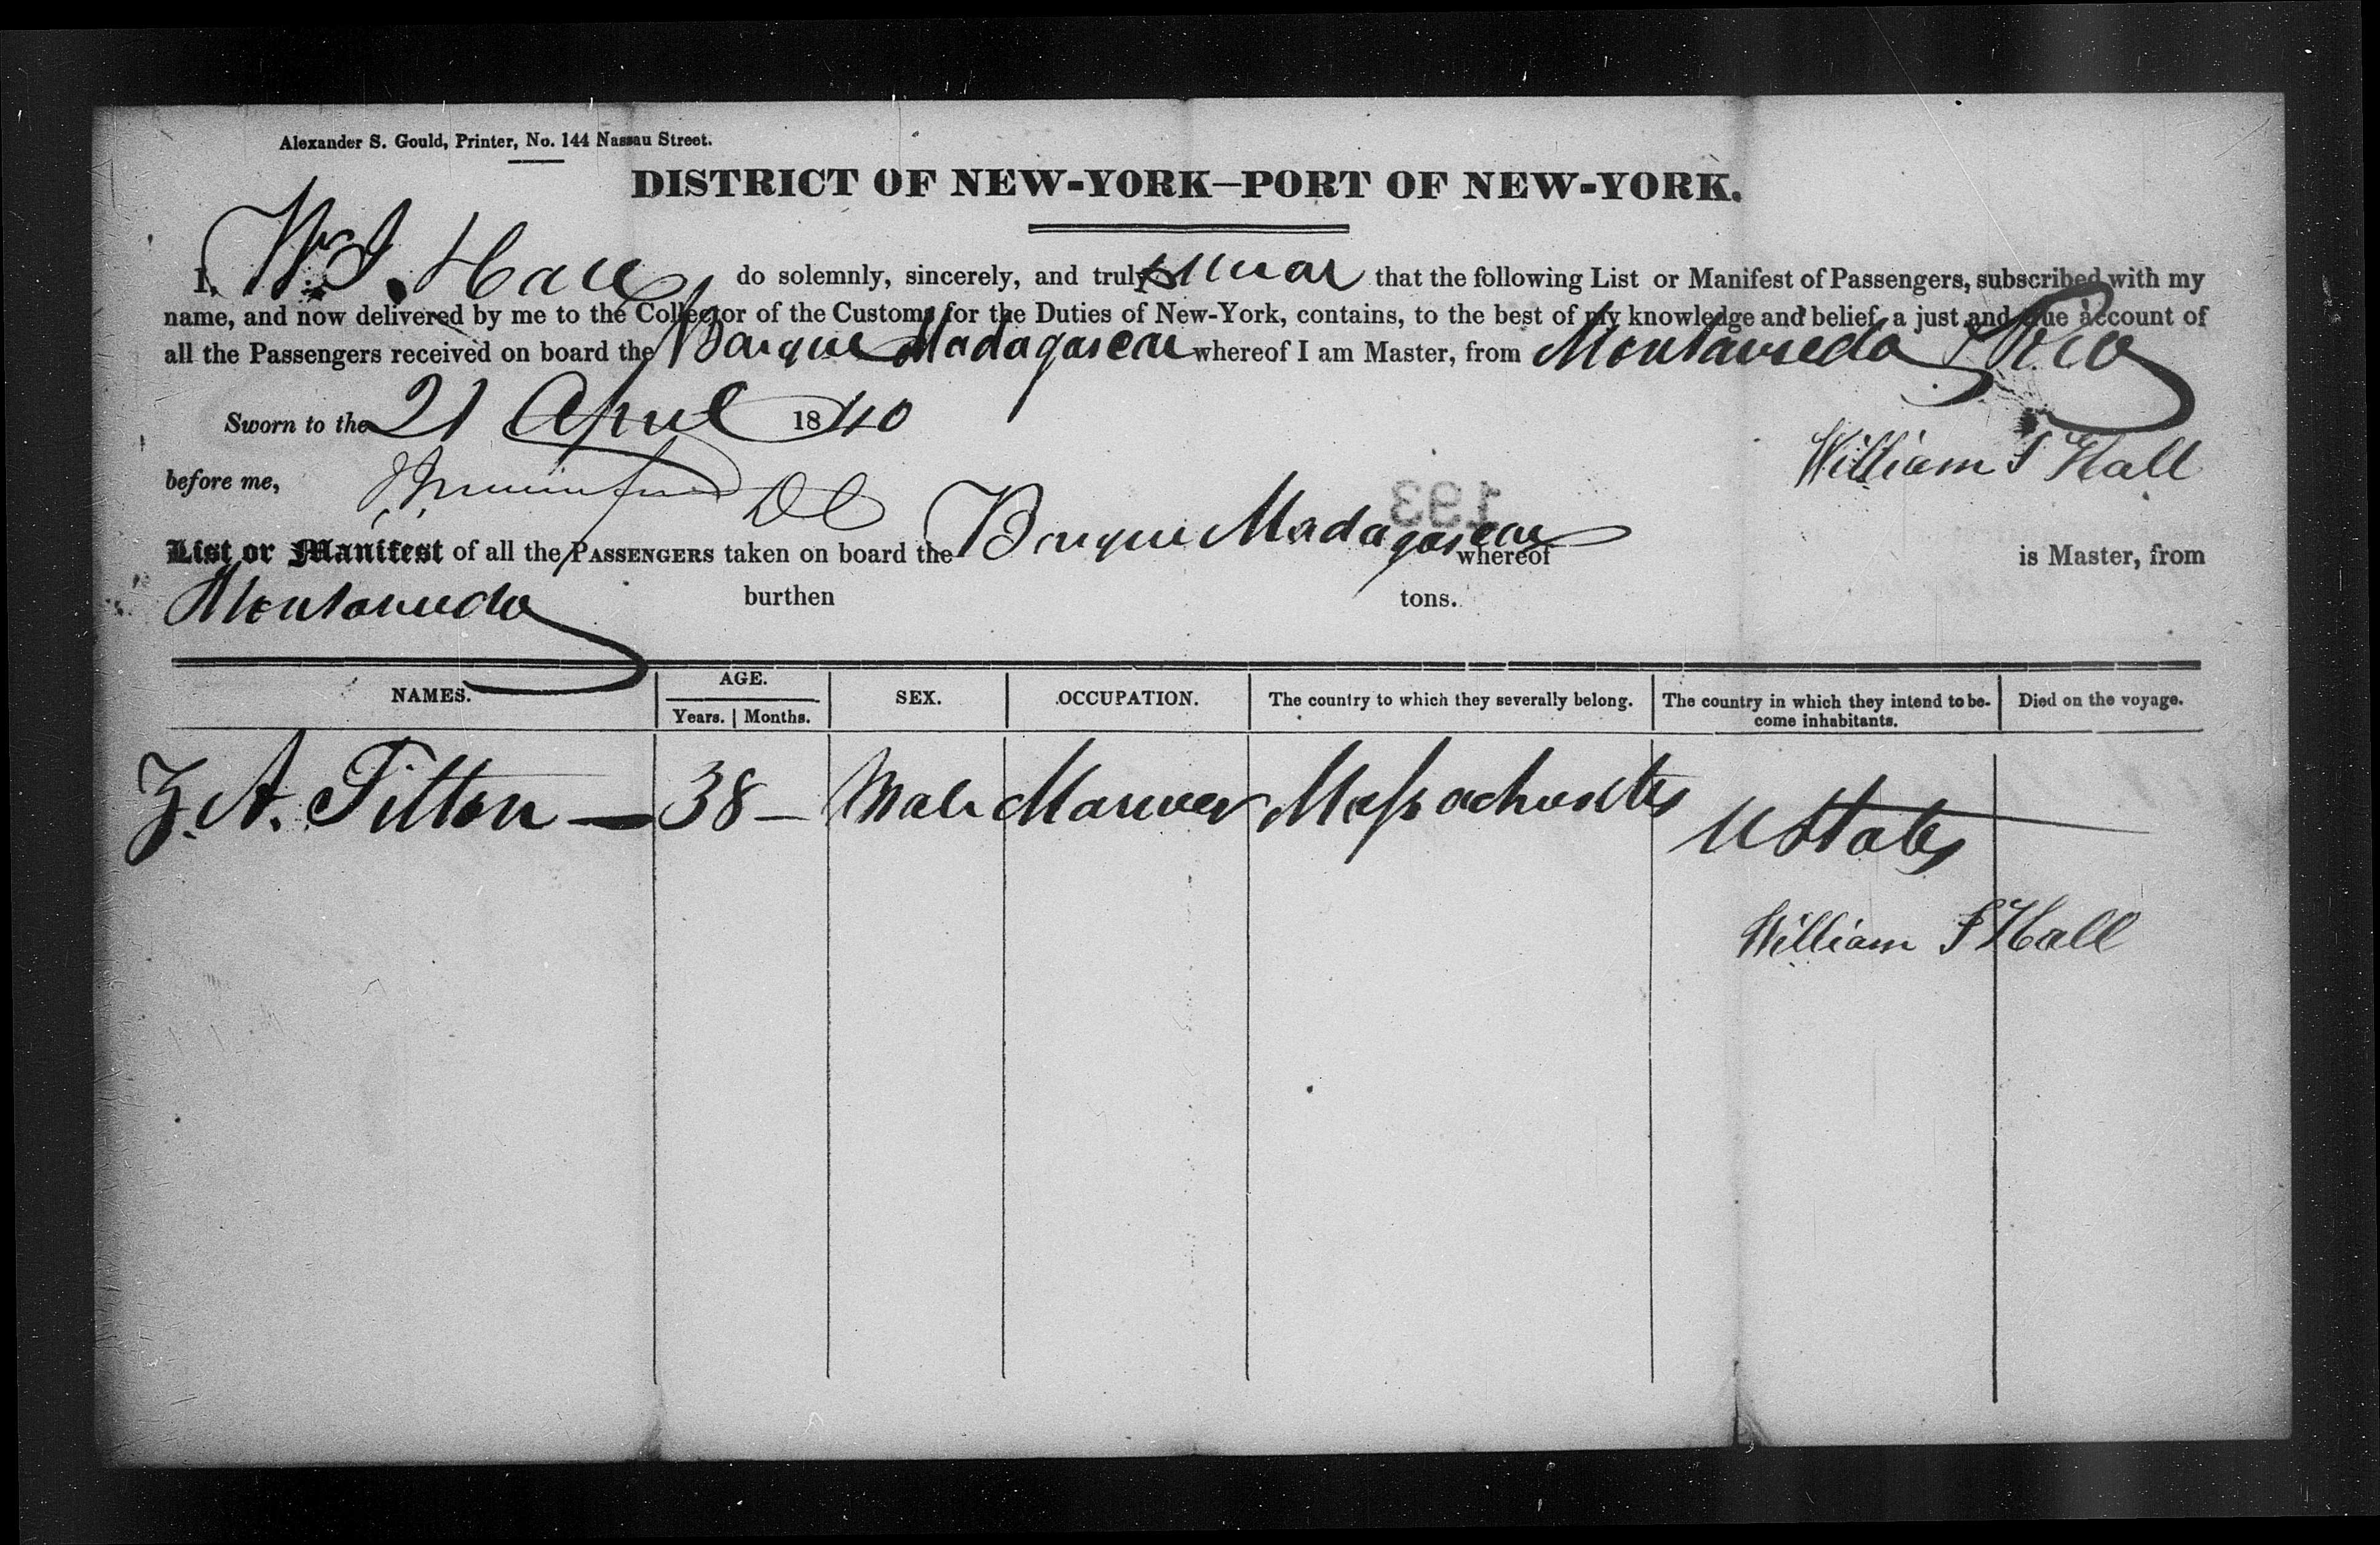 Alexander S. Gould, Printer, No. 144 Nassau Street.
DISTRICT OF NEW-YORK—PORT OF NEW-YORK.
I, Wm S. Hall do solemnly, sincerely, and truly swear that the following List or Manifest of Passengers, subscribed with my
name, and now delivered by me to the Collector of the Customs for the Duties of New-York, contains, to the best of my knowledge and belief, a just and true account of
all the Passengers received on board the Barque Madagascar whereof I am Master, from Montavideo & Rio
Sworn to the 21 April 1840
William S Hall
before me, DC
193
List or Manifest of all the PASSENGERS taken on board the Barque Madagascar whereof is Master, from
Montavedeo burthen tons.
NAMES. AGE. Years. Months. SEX. OCCUPATION. The country to which they severally belong. The country in which they intend to become inhabitants. Died on the voyage.
Z. A. Tilton — 38 — Male Mariner Massachusetts U States
William S Hall